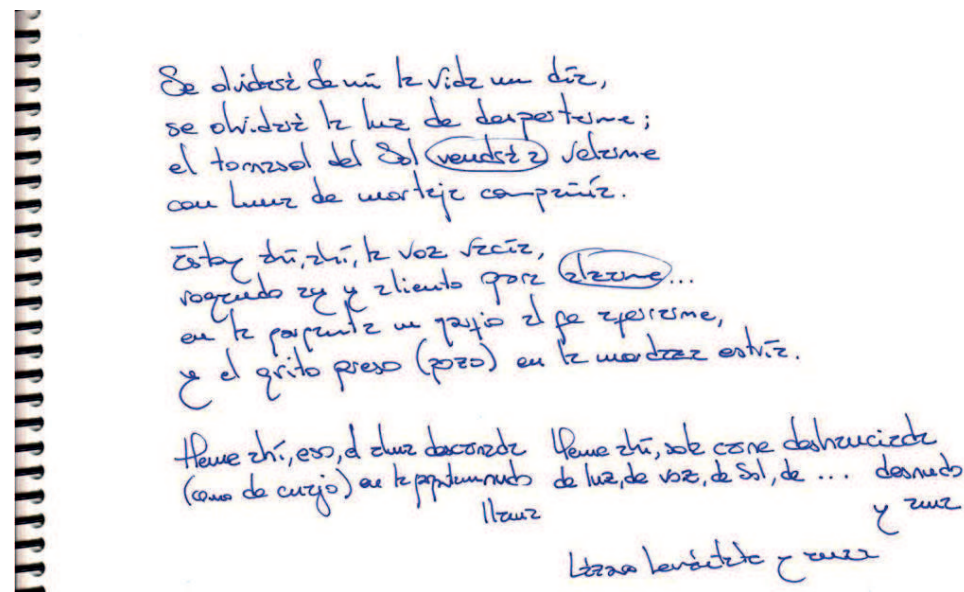 Se olvidará de mí la vida un día,
se olvidará la luz de despertarme;
el tornasol del Sol vendrá a velarme
con luna de mortaja compañía.
Estoy ahí, ahí, la voz vacía,
rogando ay y aliento para alzarme...
en la garganta un garfio al que aferrarme,
y el grito preso (pozo) en la mordaza estría.
Heme ahí, eso, el alma descarnada
(como de cuajo) en la
Heme ahí, sola carne deshauciada
de luz, de voz, de Sol, de ... desnudo
llama
y ama
Lázaro levántate y